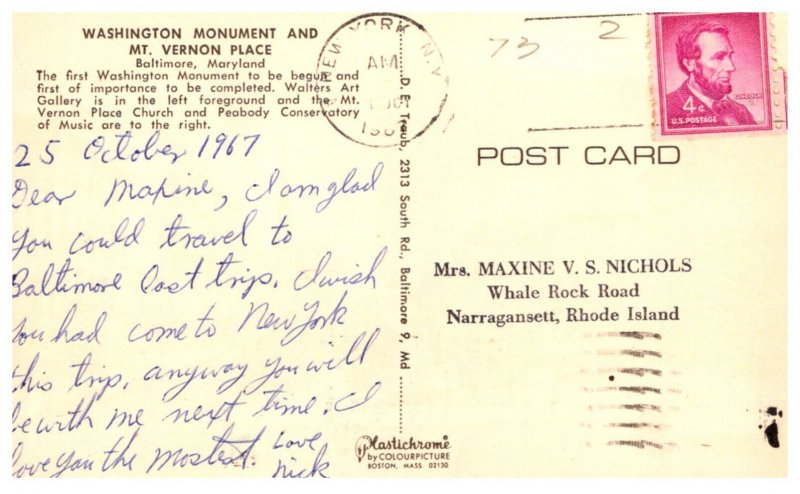 WASHINGTON MONUMENT AND
MT. VERNON PLACE
Baltimore, Maryland
The first Washington Monument to be begun and
first of importance to be completed. Walters Art
Gallery is in the left foreground and the Mt.
Vernon Place Church and Peabody Conservatory
of Music are to the right.
25 October 1967
Dear Maxine, I am glad
you could travel to
Baltimore last trip. I wish
you had come to New York
this trip. anyway you will
be with me next time. I
love you the mostest. Love
Nick
D. E. Traub, 2313 South Rd., Baltimore 9, Md
Plastichrome
by COLOURPICTURE
BOSTON, MASS. 02130
NEW YORK N.Y.
AM
73 2
4¢
LINCOLN
U.S. POSTAGE
POST CARD
Mrs. MAXINE V. S. NICHOLS
Whale Rock Road
Narragansett, Rhode Island